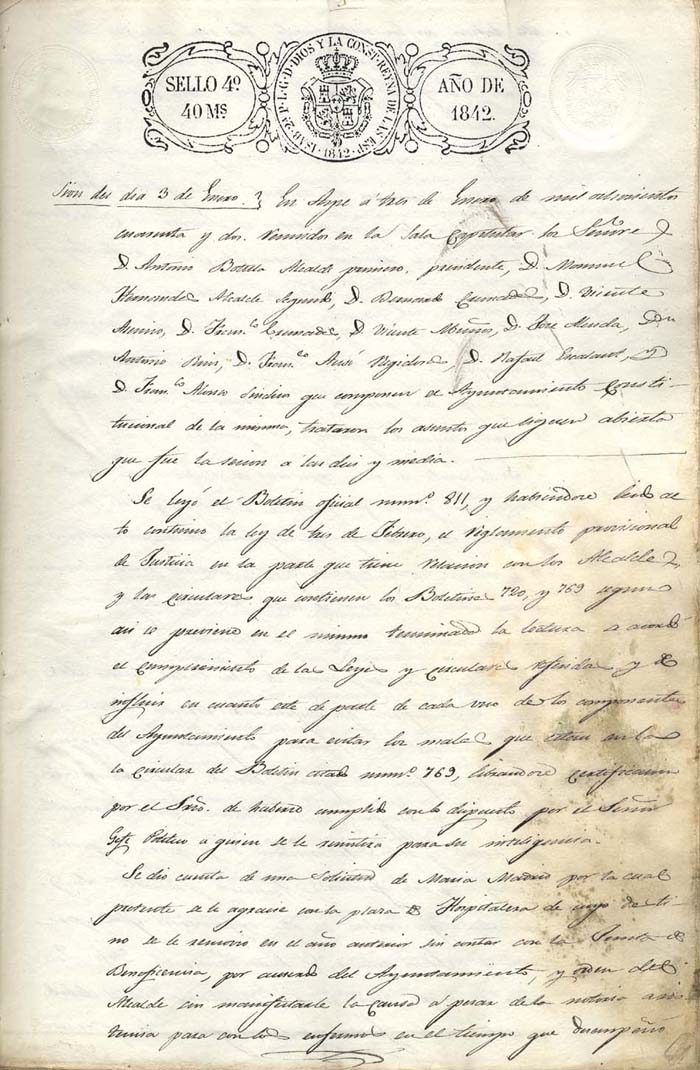 SELLO 4º
40 Mˢ
ISAB. 2ª P. L. G. D. DIOS Y LA CONST. REYNA DE LAS ESP.
1842
AÑO DE
1842.
Sion del dia 3 de Enero. En Aspe á tres de Enero de mil ochocientos
cuarenta y dos. reunidos en la Sala Capitular los Señores
D. Antonio Botella Alcalde primero, presidente, D. Manuel
Hernandez Alcalde Segundo, D. Bernardo Cremades, D. Vicente
D. Franᶜᵒ Cremades, D. Vicente D. Jose
Antonio D. Franᶜᵒ Regidores, D. Rafael y
D. Franᶜᵒ Alonso Sindico que componen el Ayuntamiento Consti-
tucional de la misma, trataron los asuntos que siguen abierta
que fue la sesion á las dies y media.
Se leyó el Boletin oficial numº 811, y habiendose leido ac-
to continuo la ley de tres de Febrero, el reglamento provisional
de Justicia en la parte que tiene relacion con los Alcaldes
y las circulares que contienen los Boletines 720, y 769 segun
asi se previene en el mismo terminado la lectura se acordó
el cumplimiento de las Leyes y circulares referidas y se
en cuanto este de parte de cada uno de los componentes
del Ayuntamiento para evitar los males que en la
la circular del Boletin citado numº 769, librandose certificacion
por el Srio. de haberse cumplido con lo dispuesto por el Señor
Gefe Politico a quien se le remitira para su inteligencia.
Se dio cuenta de una Solicitud de Maria Madrid por la cual
se le agracie con la plaza de Hospitalera de cuyo desti-
no se le removio en el año anterior sin contar con la Junta de
Beneficencia, por acuerdo del Ayuntamiento, y orden del
Alcalde sin manifestarle la causa á pesar de la notoria asis-
tencia para con los enfermos en el tiempo que desempeñó